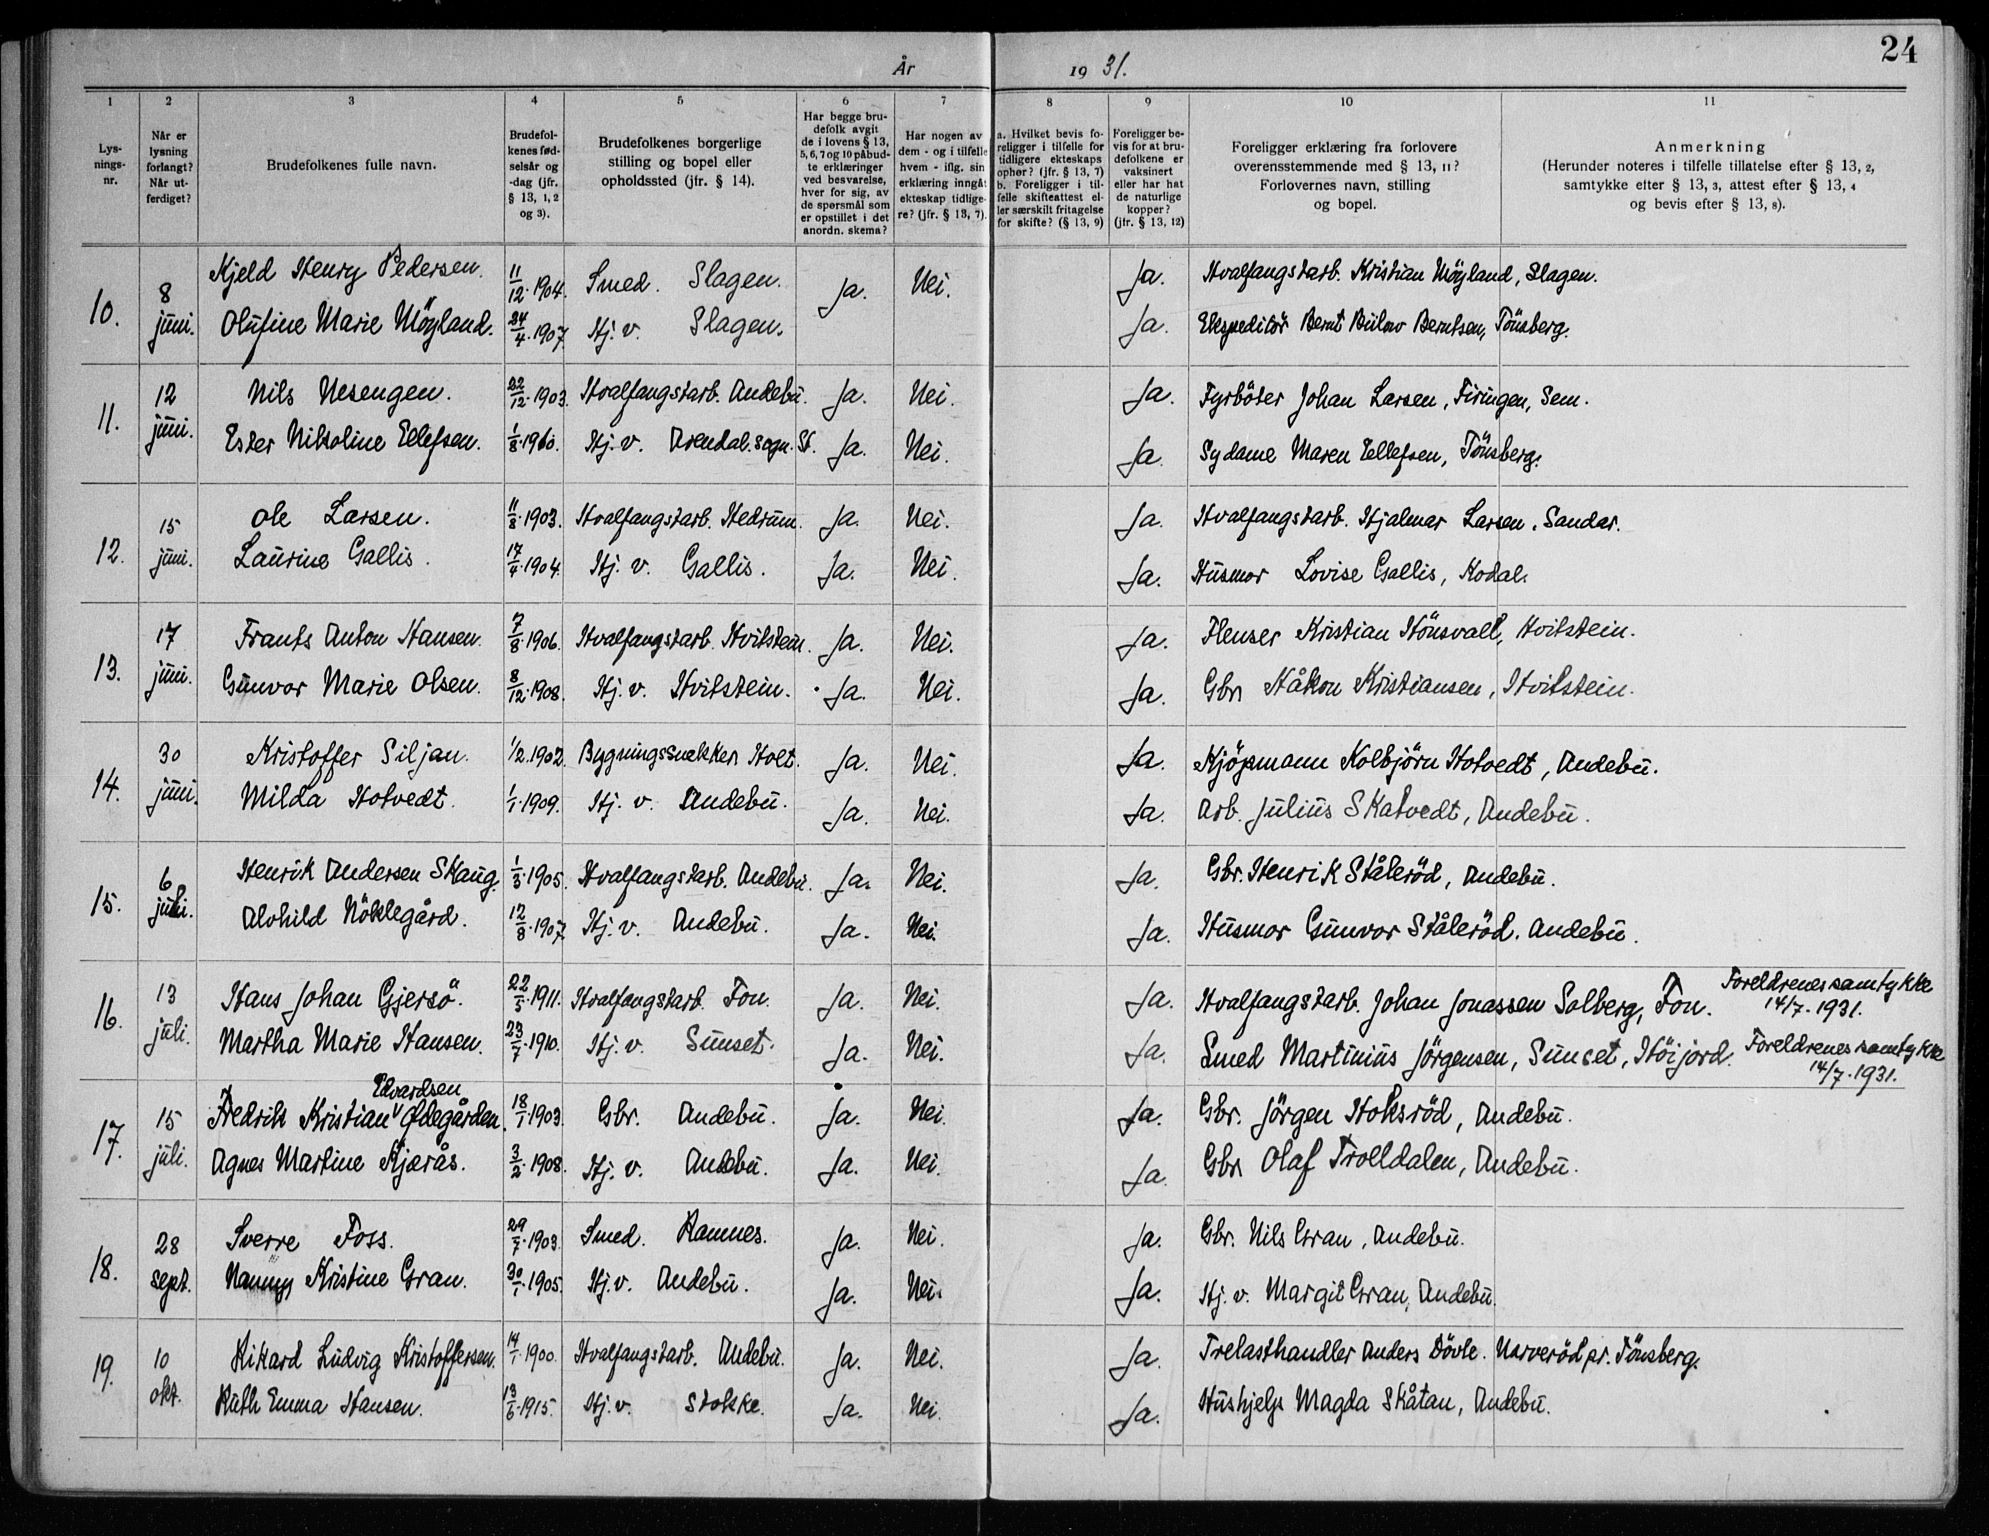 24
År 19 31.
1 2 3 4 5 6 7 8 9 10 11
Lysningsnr.
Når er lysning forlangt? Når utferdiget?
Brudefolkenes fulle navn.
Brudefolkenes fødselsår og -dag (jfr. § 13, 1, 2 og 3).
Brudefolkenes borgerlige stilling og bopel eller opholdssted (jfr. § 14).
Har begge brudefolk avgit de i lovens § 13, 5, 6, 7 og 10 påbudte erklæringer ved besvarelse, hver for sig, av de spørsmål som er opstillet i det anordn. skema?
Har nogen av dem - og i tilfelle hvem - iflg. sin erklæring inngåt ekteskap tidligere? (jfr. § 13, 7).
a. Hvilket bevis foreligger i tilfelle for tidligere ekteskaps ophør? (jfr. § 13, 7) b. Foreligger i tilfelle skifteattest eller særskilt fritagelse for skifte? (§ 13, 9)
Foreligger bevis for at brudefolkene er vaksinert eller har hat de naturlige kopper? (jfr. § 13, 12)
Foreligger erklæring fra forlovere overensstemmende med § 13, 11? Forlovernes navn, stilling og bopel.
Anmerkning (Herunder noteres i tilfelle tillatelse efter § 13, 2, samtykke efter § 13, 3, attest efter § 13, 4 og bevis efter § 13, 8).
10. 8 juni. Kjeld Henry Pedersen. 11/12.1904. Smed. Slagen. Ja. Nei. Ja. Hvalfangstarb. Kristian Möyland, Slagen.
Olufine Marie Möyland. 24/4.1907. Hj. v. Slagen. Ja. Ekspeditör Bernt Bülow Berntsen, Tönsberg.
11. 12 juni. Nils Nesengen. 22/12.1903. Hvalfangstarb. Andebu. Ja. Nei. Ja. Fyrböter Johan Larsen, Firingen, Sem.
Ester Nikoline Ellefsen. 1/8.1910. Hj. v. Arendal. sogn. St. Ja. Nei. Ja. Sydame Maren Ellefsen, Tönsberg.
12. 15 juni. Ole Larsen. 11/8.1903. Hvalfangstarb. Hedrum. Ja. Nei. Ja. Hvalfangstarb. Hjalmar Larsen, Sandar.
Laurine Gallis. 17/4.1904. Hj. v. Gallis. Ja. Nei. Ja. Husmor Lovise Gallis, Kodal.
13. 17 juni. Frants Anton Hansen. 7/8.1906. Hvalfangstarb. Hvitstein. Ja. Nei. Ja. Flenser Kristian Hönsvall, Hvitstein.
Gunvor Marie Olsen. 8/12.1908. Hj. v. Hvitstein. Ja. Nei. Ja. Gbr. Håkon Kristiansen, Hvitstein.
14. 30 juni. Kristoffer Siljan. 1/2.1902. Bygningssnekker Holt. Ja. Nei. Ja. Kjöpmann Kolbjörn Hotvedt, Andebu.
Milda Hotvedt. 1/1.1909. Hj. v. Andebu. Ja. Nei. Ja. Arb. Julius Skatvedt, Andebu.
15. 6 juli. Henrik Andersen Skaug. 1/3.1905. Hvalfangstarb. Andebu. Ja. Nei. Ja. Gbr. Henrik Ståleröd, Andebu.
Alvhild Nöklegård. 12/8.1907. Hj. v. Andebu. Ja. Nei. Ja. Husmor Gunvor Ståleröd. Andebu.
16. 13 juli. Hans Johan Gjersö. 22/5.1911. Hvalfangstarb. Fon. Ja. Nei. Ja. Hvalfangstarb. Johan Jonassen Solberg, Fon. Foreldrenes samtykke 14/7.1931.
Martha Marie Hansen. 23/7.1910. Hj. v. Sunset. Ja. Nei. Ja. Smed Martinius Jörgensen, Sunset, Höijord. Foreldrenes samtykke 14/7.1931.
17. 15 juli. Fredrik Kristian Edvardsen Ødegården. 18/1.1903. Gbr. Andebu. Ja. Nei. Ja. Gbr. Jörgen Hoksröd, Andebu.
Agnes Martine Kjærås. 3/2.1908. Hj. v. Andebu. Ja. Nei. Ja. Gbr. Olaf Trolldalen, Andebu.
18. 28 sept. Sverre Foss. 29/7.1903. Smed. Ramnes. Ja. Nei. Ja. Gbr. Nils Gran, Andebu.
Nanny Kristine Gran. 30/1.1905. Hj. v. Andebu. Ja. Nei. Ja. Hj. v. Margit Gran, Andebu.
19. 10 okt. Rikard Ludvig Kristoffersen. 14/1.1900. Hvalfangstarb. Andebu. Ja. Nei. Ja. Trelasthandler Anders Dövle. Narveröd pr. Tönsberg.
Ruth Emma Hansen. 13/6.1915. Hj. v. Stokke. Ja. Nei. Ja. Hushjelp Magda Skåtan, Andebu.